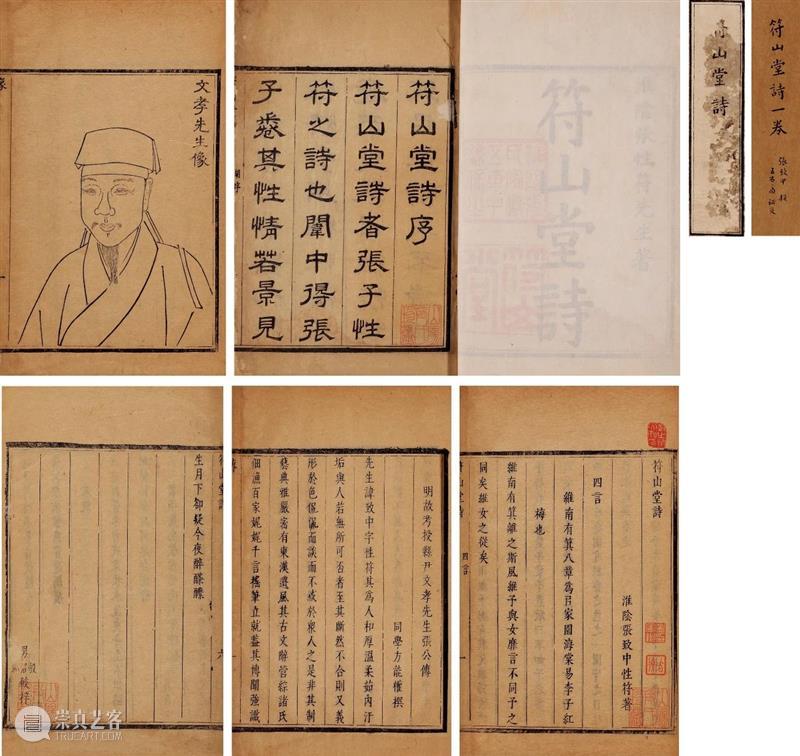 文孝先生像
符山堂詩序
符山堂詩者張子性
符之詩也闈中得張
子卷其性情若景見
淮陰張性符先生著
符山堂詩
符山堂詩
符山堂詩一卷
符山堂詩
生月下卻疑今夜醉醺醺
明故考授縣尹文孝先生張公傳
同學方能權撰
先生諱致中字性符其為人和厚溫柔茹內汙
垢與人若無所可否者至其斷然不合則又義
形於色侃侃而談而不欲於衆人之是非其制
藝典雅嚴密有東漢遺風其古文辭管綜諸氏
佃漁百家娓娓千言搖筆立就蓋其博聞强識
符山堂詩
淮陰張致中性符著
四言
維南有箕八章為弓家園海棠易李子紅
梅也
維南有箕離之斯風維子與女靡言不同予之
同矣維女之從矣
符山堂詩
四言
崇真艺客